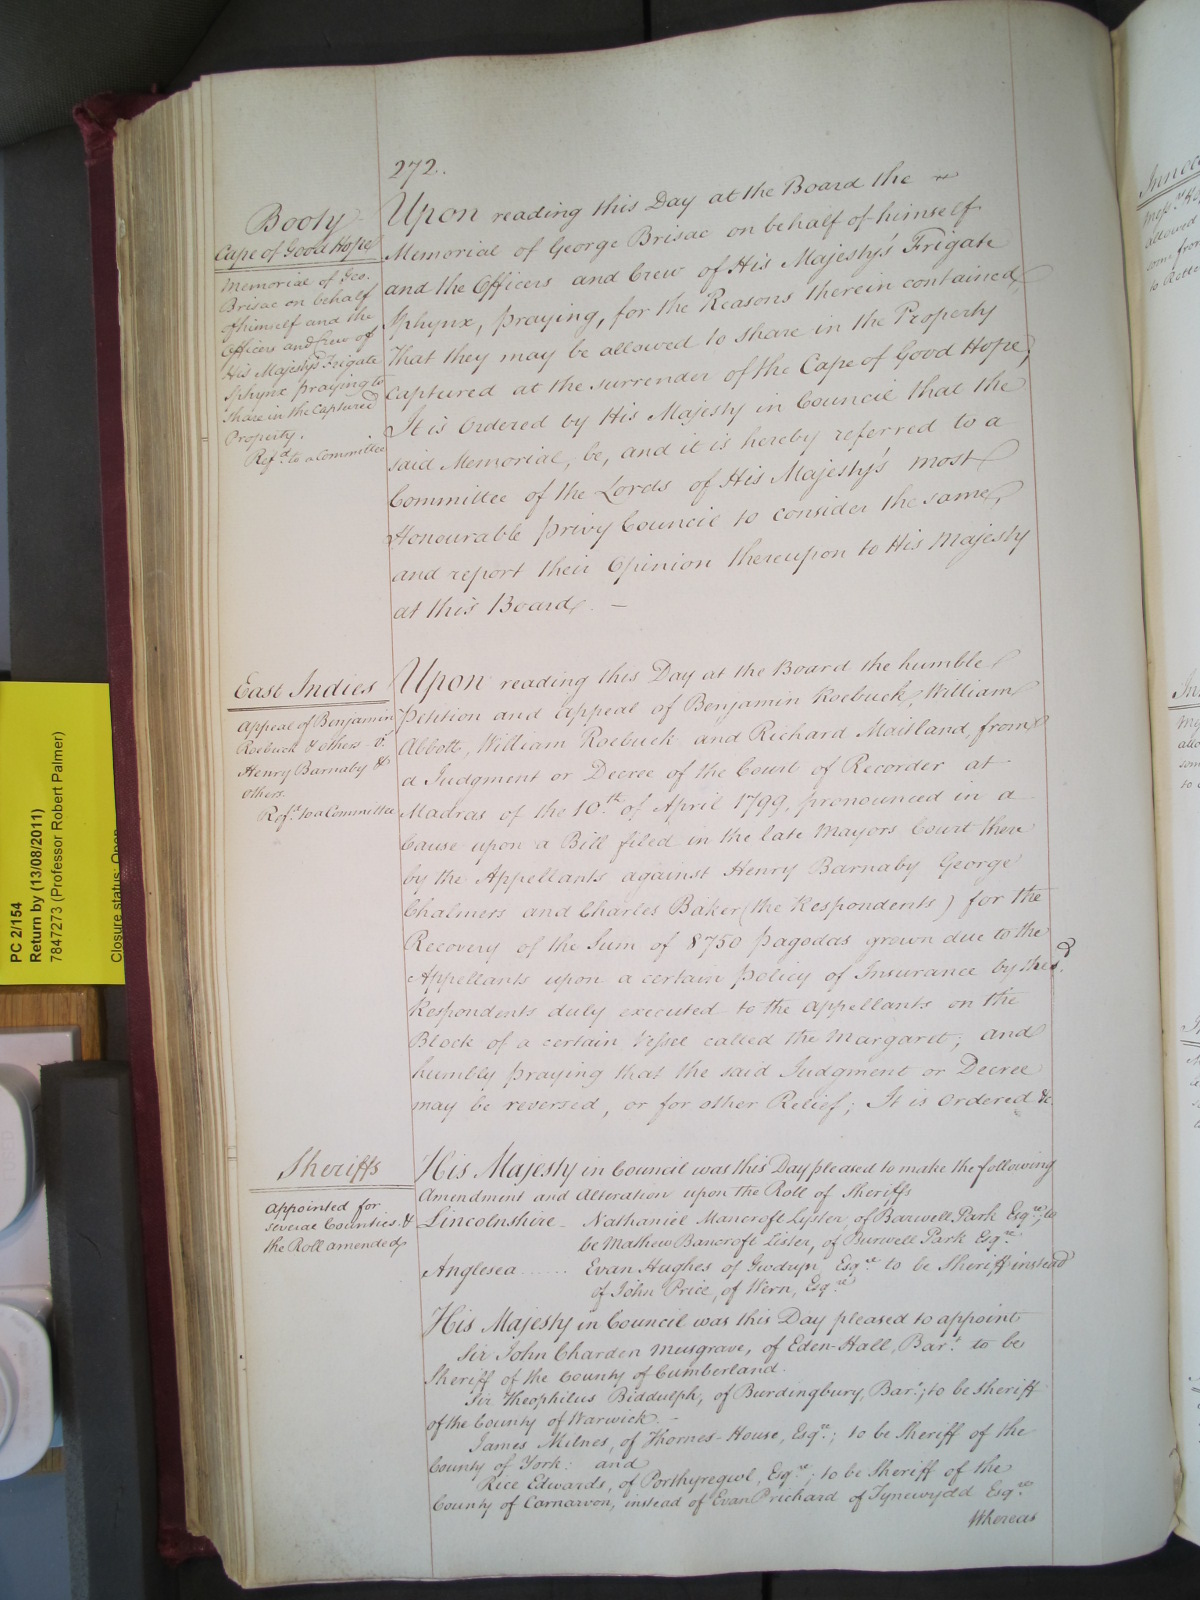 272.
Booty
Cape of Good Hope
Memorial of Geo.
Brisac on behalf
of himself and the
Officers and Crew of
His Majesty's Frigate
Sphynx praying to
share in the Captured
Property.
Ref.d to a Committee
Upon reading this Day at the Board the
Memorial of George Brisac on behalf of himself
and the Officers and Crew of His Majesty's Frigate
Sphynx, praying, for the Reasons therein contained,
That they may be allowed to share in the Property
captured at the surrender of the Cape of Good Hope,
It is Ordered by His Majesty in Council that the
said Memorial, be, and it is hereby referred to a
Committee of the Lords of His Majesty's most
Honourable Privy Council to consider the same,
and report their Opinion thereupon to His Majesty
at this Board. —
East Indies
Appeal of Benjamin
Roebuck & others v.
Henry Barnaby &
others.
Ref.d to a Committee
Upon reading this Day at the Board the humble
Petition and Appeal of Benjamin Roebuck, William
Abbott, William Roebuck and Richard Maitland, from
a Judgment or Decree of the Court of Recorder at
Madras of the 10.th of April 1799, pronounced in a
Cause upon a Bill filed in the late Mayors Court there
by the Appellants against Henry Barnaby George
Chalmers and Charles Baker (the Respondents) for the
Recovery of the Sum of 8750 Pagodas grown due to the
Appellants upon a certain Policy of Insurance by the s.d
Respondents duly executed to the Appellants on the
Block of a certain Vessel called the Margaret; and
humbly praying that the said Judgment or Decree
may be reversed, or for other Relief; It is Ordered &c.
Sheriffs
Appointed for
several Counties &
the Roll amended
His Majesty in Council was this Day pleased to make the following
Amendment and Alteration upon the Roll of Sheriffs
Lincolnshire - Nathaniel Mancroft Lyster, of Barwell Park Esq.re, to
be Mathew Bancroft Lister, of Burwell Park Esq.re
Anglesea ...... Evan Hughes of Esq.re to be Sheriff instead
of John Price, of Wern, Esq.re
His Majesty in Council was this Day pleased to appoint
Sir John Charden Musgrave, of Eden-Hall, Bar.t to be
Sheriff of the County of Cumberland.
Sir Theophilus Biddulph, of Burdingbury, Bar.t; to be Sheriff
of the County of Warwick. -
James Milnes, of Thornes-House, Esq.re; to be Sheriff of the
County of York: and
Rice Edwards, of Porthyregwl, Esq.re; to be Sheriff of the
County of Carnarvon, instead of Evan Prichard of Tynewydd Esq.re
Whereas
PC 2/154
Return by (13/08/2011)
7847273 (Professor Robert Palmer)
Closure status: Open